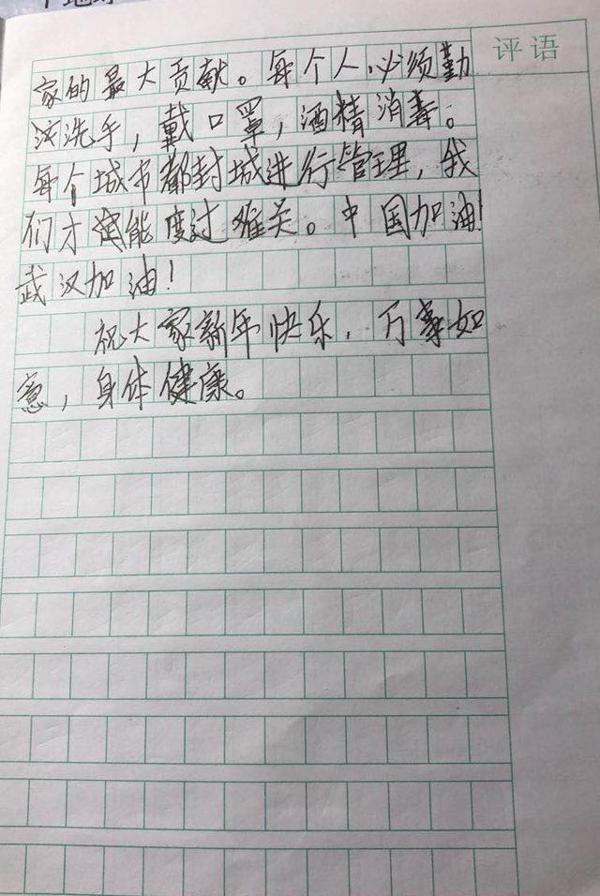 评语
家的最大贡献。每个人必须勤
洗手，戴口罩，酒精消毒。
每个城市都封城进行管理，我
们才能度过难关。中国加油！
武汉加油！
祝大家新年快乐，万事如
意，身体健康。